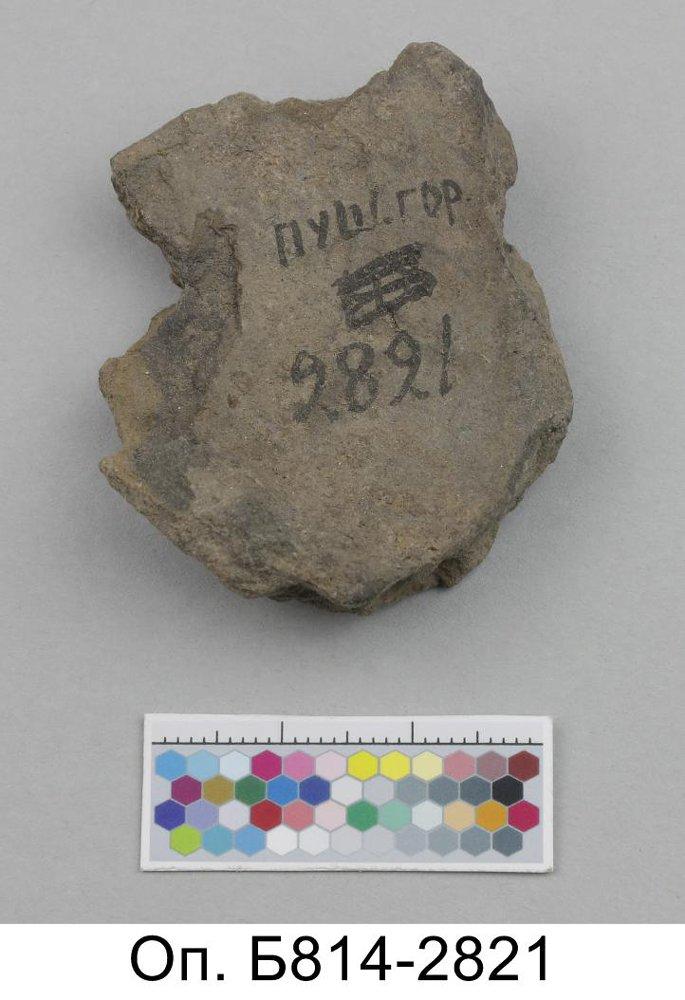 ПУШ.ГОР.
2821
Оп. Б814-2821